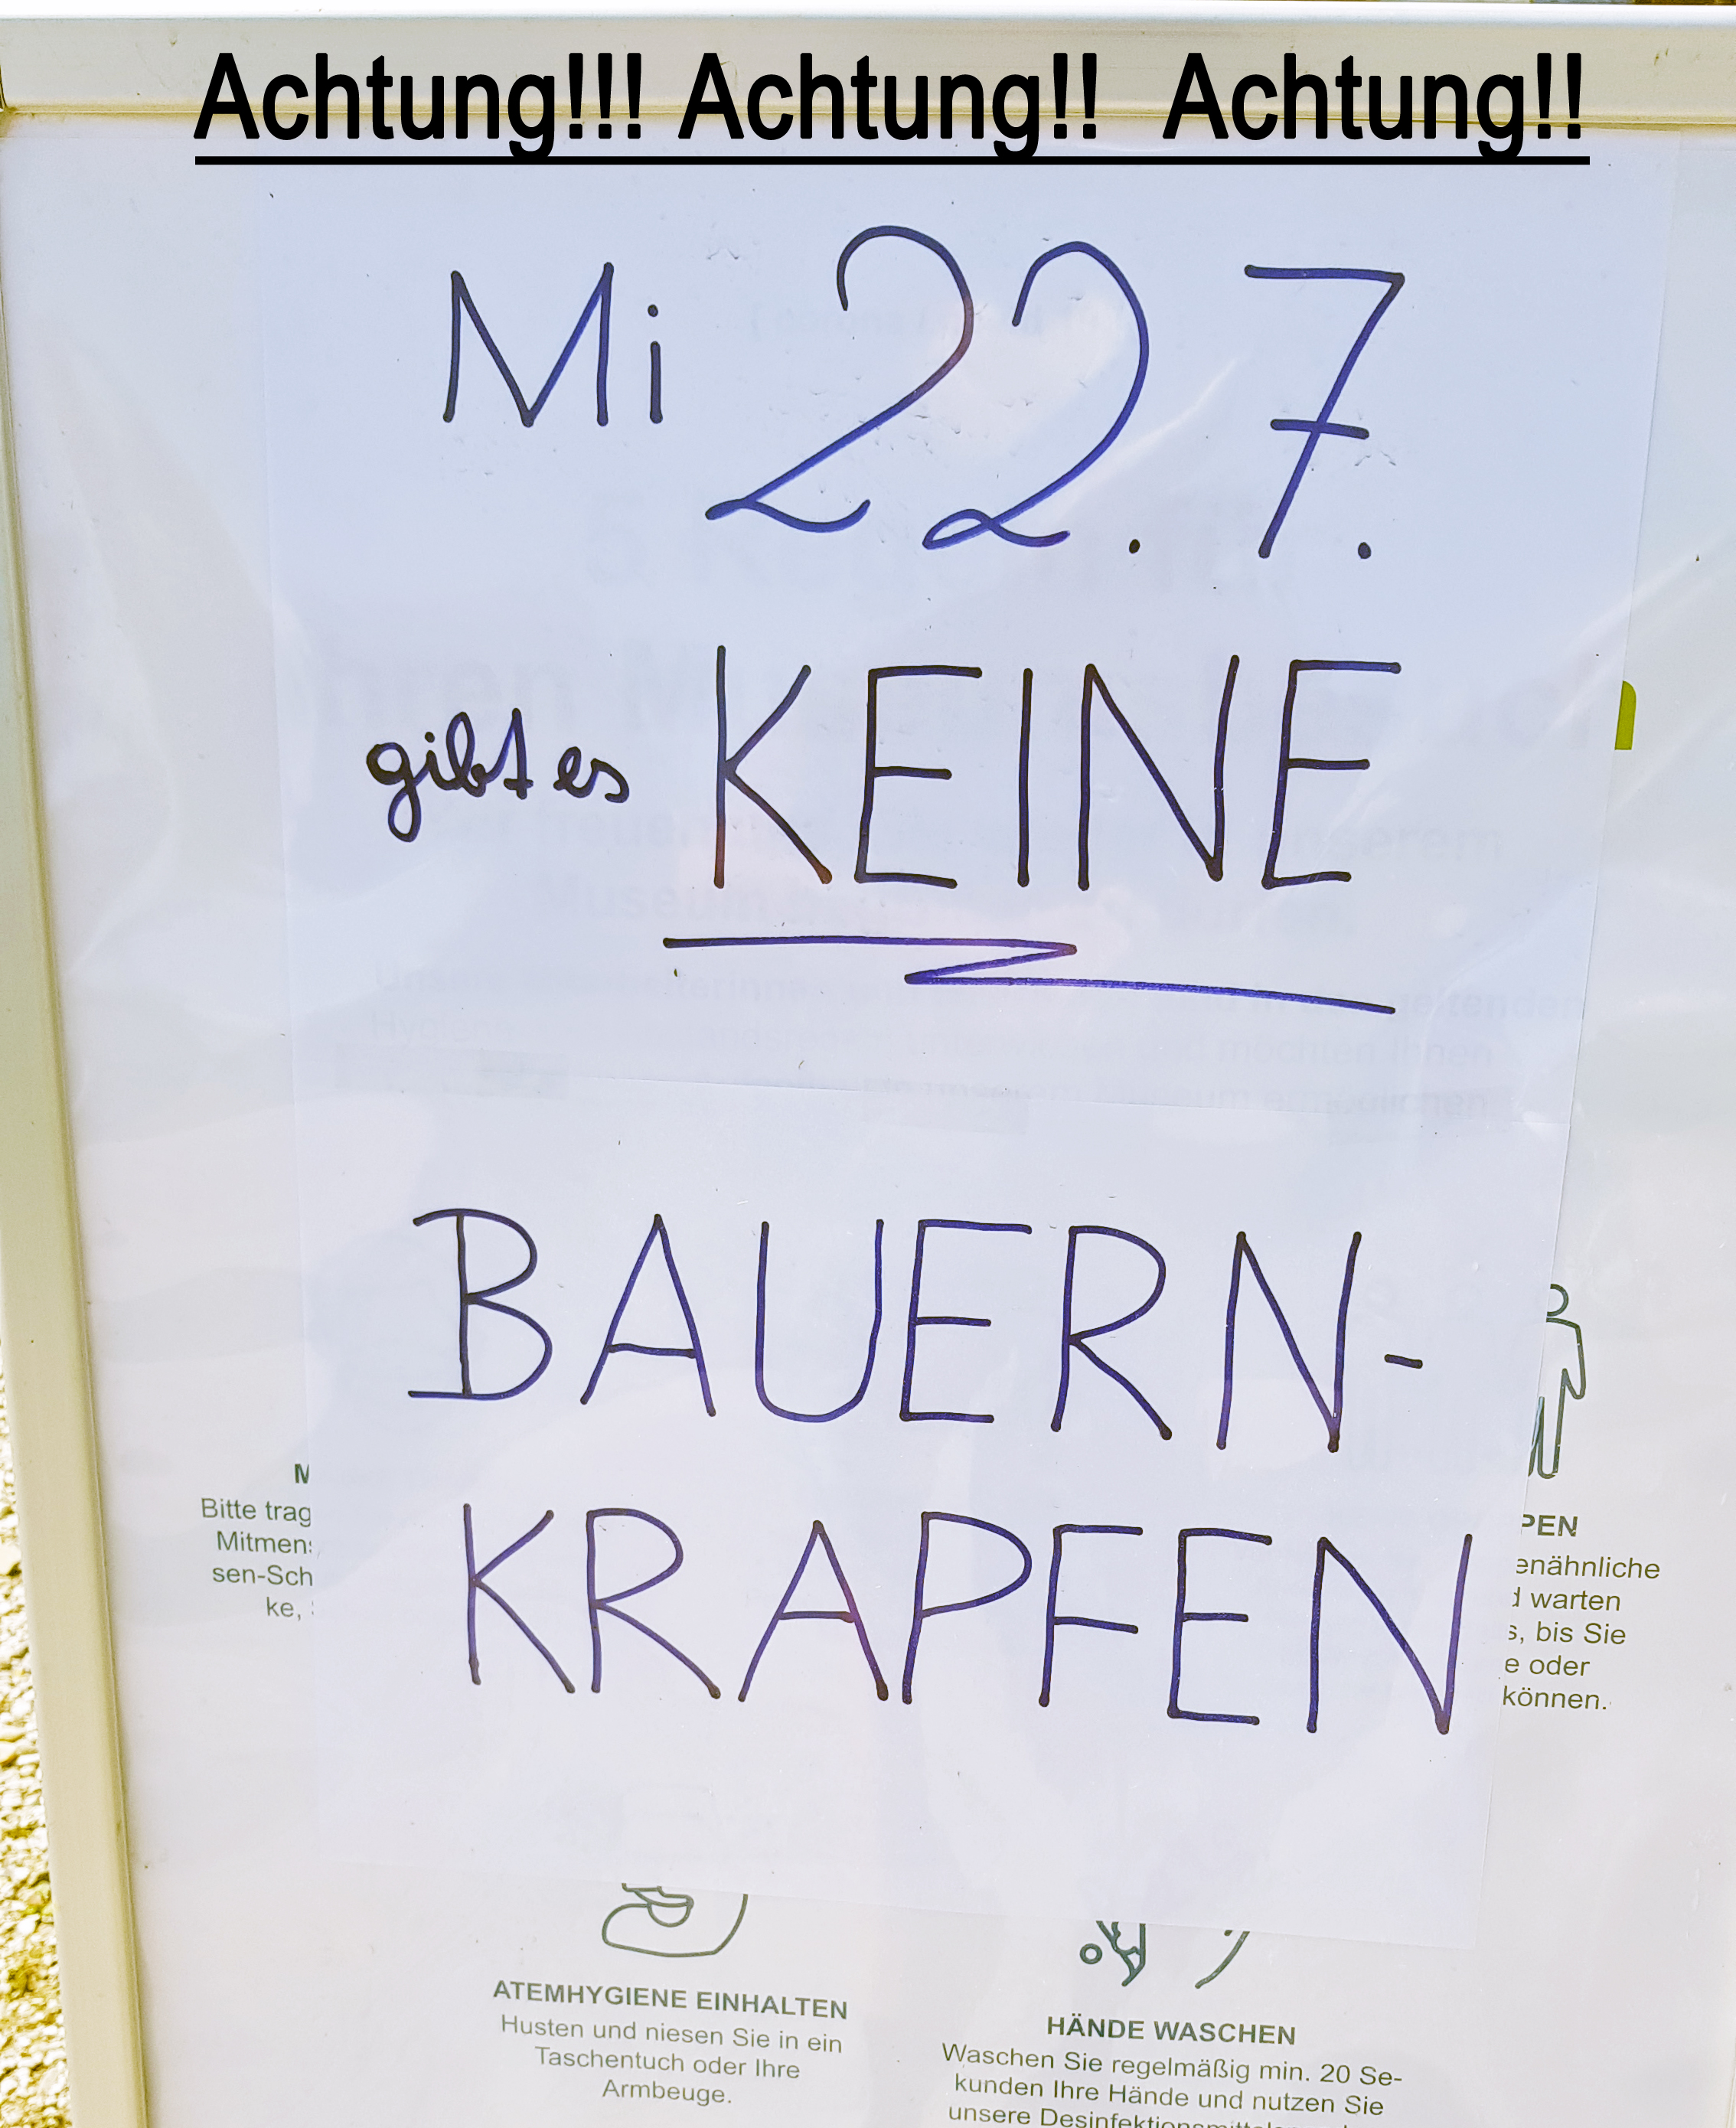 Achtung!!! Achtung!! Achtung!!
Mi 22.7.
gibt es KEINE
BAUERN-
KRAPFEN
Bitte trag
Mitmens
sen-Sch
ke,
PEN
enähnliche
d warten
s, bis Sie
e oder
können.
ATEMHYGIENE EINHALTEN
Husten und niesen Sie in ein
Taschentuch oder Ihre
Armbeuge.
HÄNDE WASCHEN
Waschen Sie regelmäßig min. 20 Se-
kunden Ihre Hände und nutzen Sie
unsere